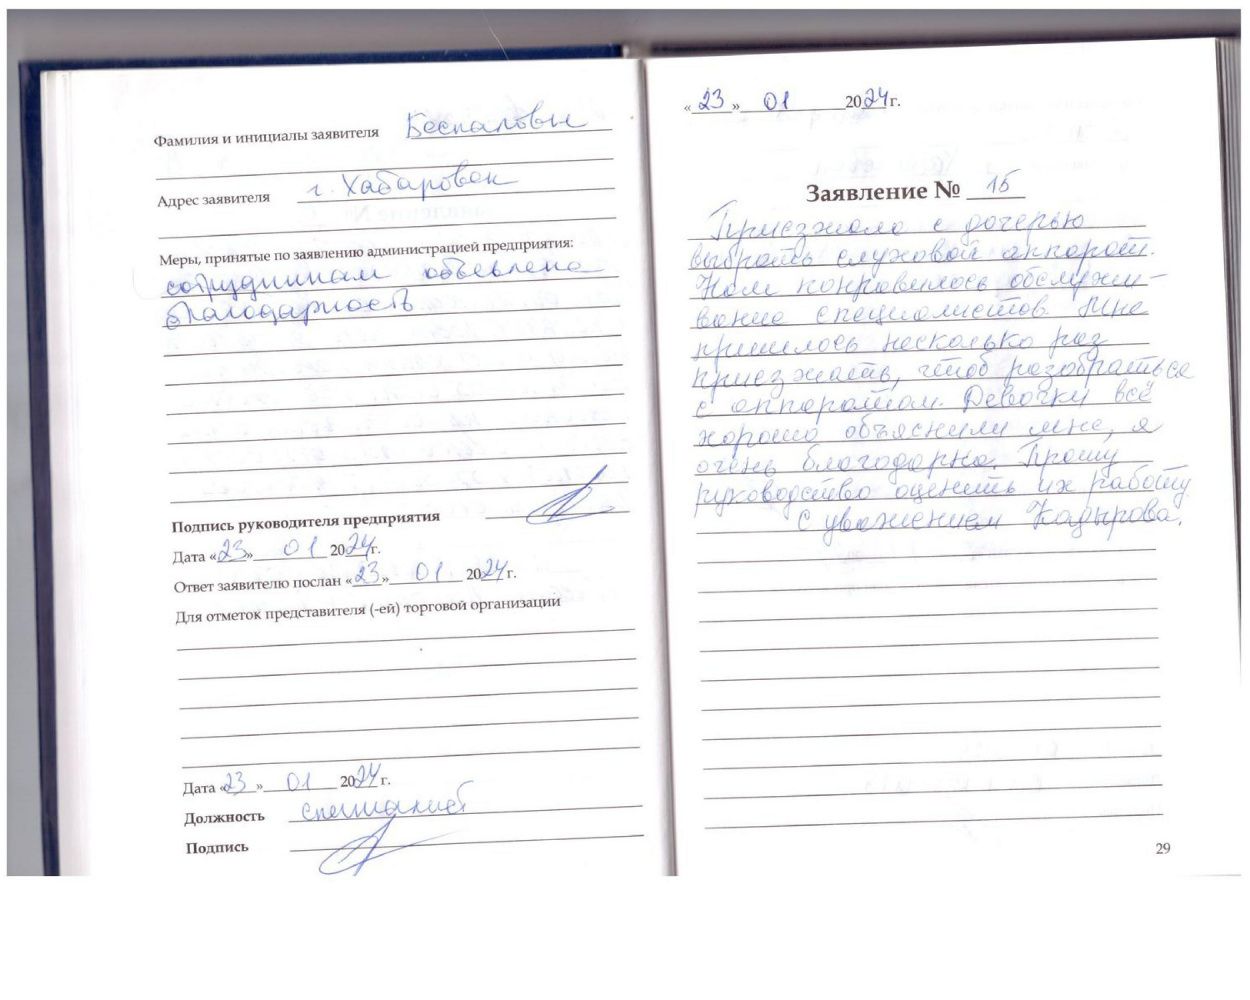 Фамилия и инициалы заявителя Беспаловы
Адрес заявителя г. Хабаровск
Меры, принятые по заявлению администрацией предприятия:
сотрудникам объявлена
благодарность
Подпись руководителя предприятия
Дата «23» 01 2024г.
Ответ заявителю послан «23» 01 2024г.
Для отметок представителя (-ей) торговой организации
Дата «23» 01 2024г.
Должность специалист
Подпись
«23» 01 2024г.
Заявление № 15
Приезжала с дочерью
выбрать слуховой аппарат.
Нам понравилось обслужи-
вание специалистов. Мне
пришлось несколько раз
приезжать, чтоб разобраться
с аппаратом. Девочки всё
хорошо объяснили мне, я
очень благодарна. Прошу
руководство оценить их работу
С уважением Кадырова.
29